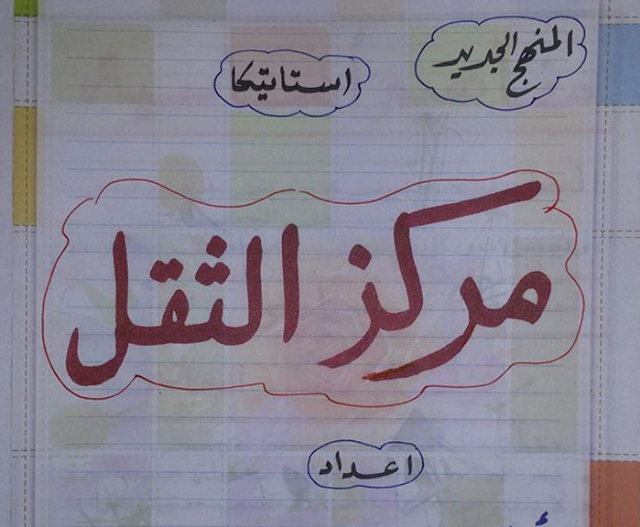 المنهج الجديد
استاتيكا
مركز الثقل
اعداد